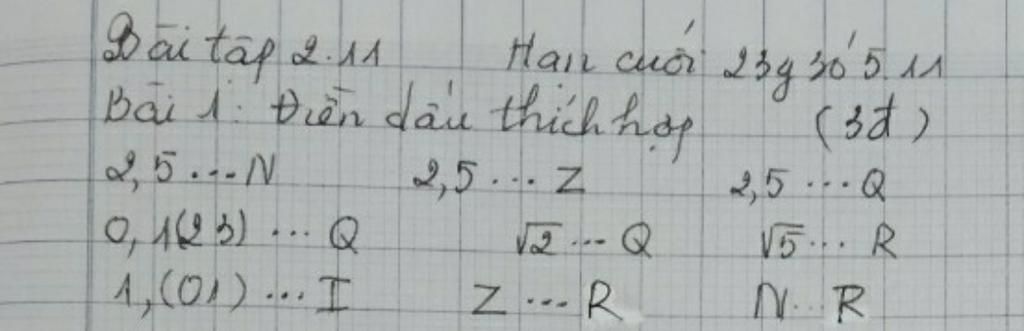 Bài tập 2.11 Hạn cuối 23g30' 5.11
Bài 1: Điền dấu thích hợp (3đ)
2,5 ... N 2,5 ... Z 2,5 ... Q
0,1(23) ... Q √2 ... Q √5 ... R
1,(01) ... I Z ... R N ... R